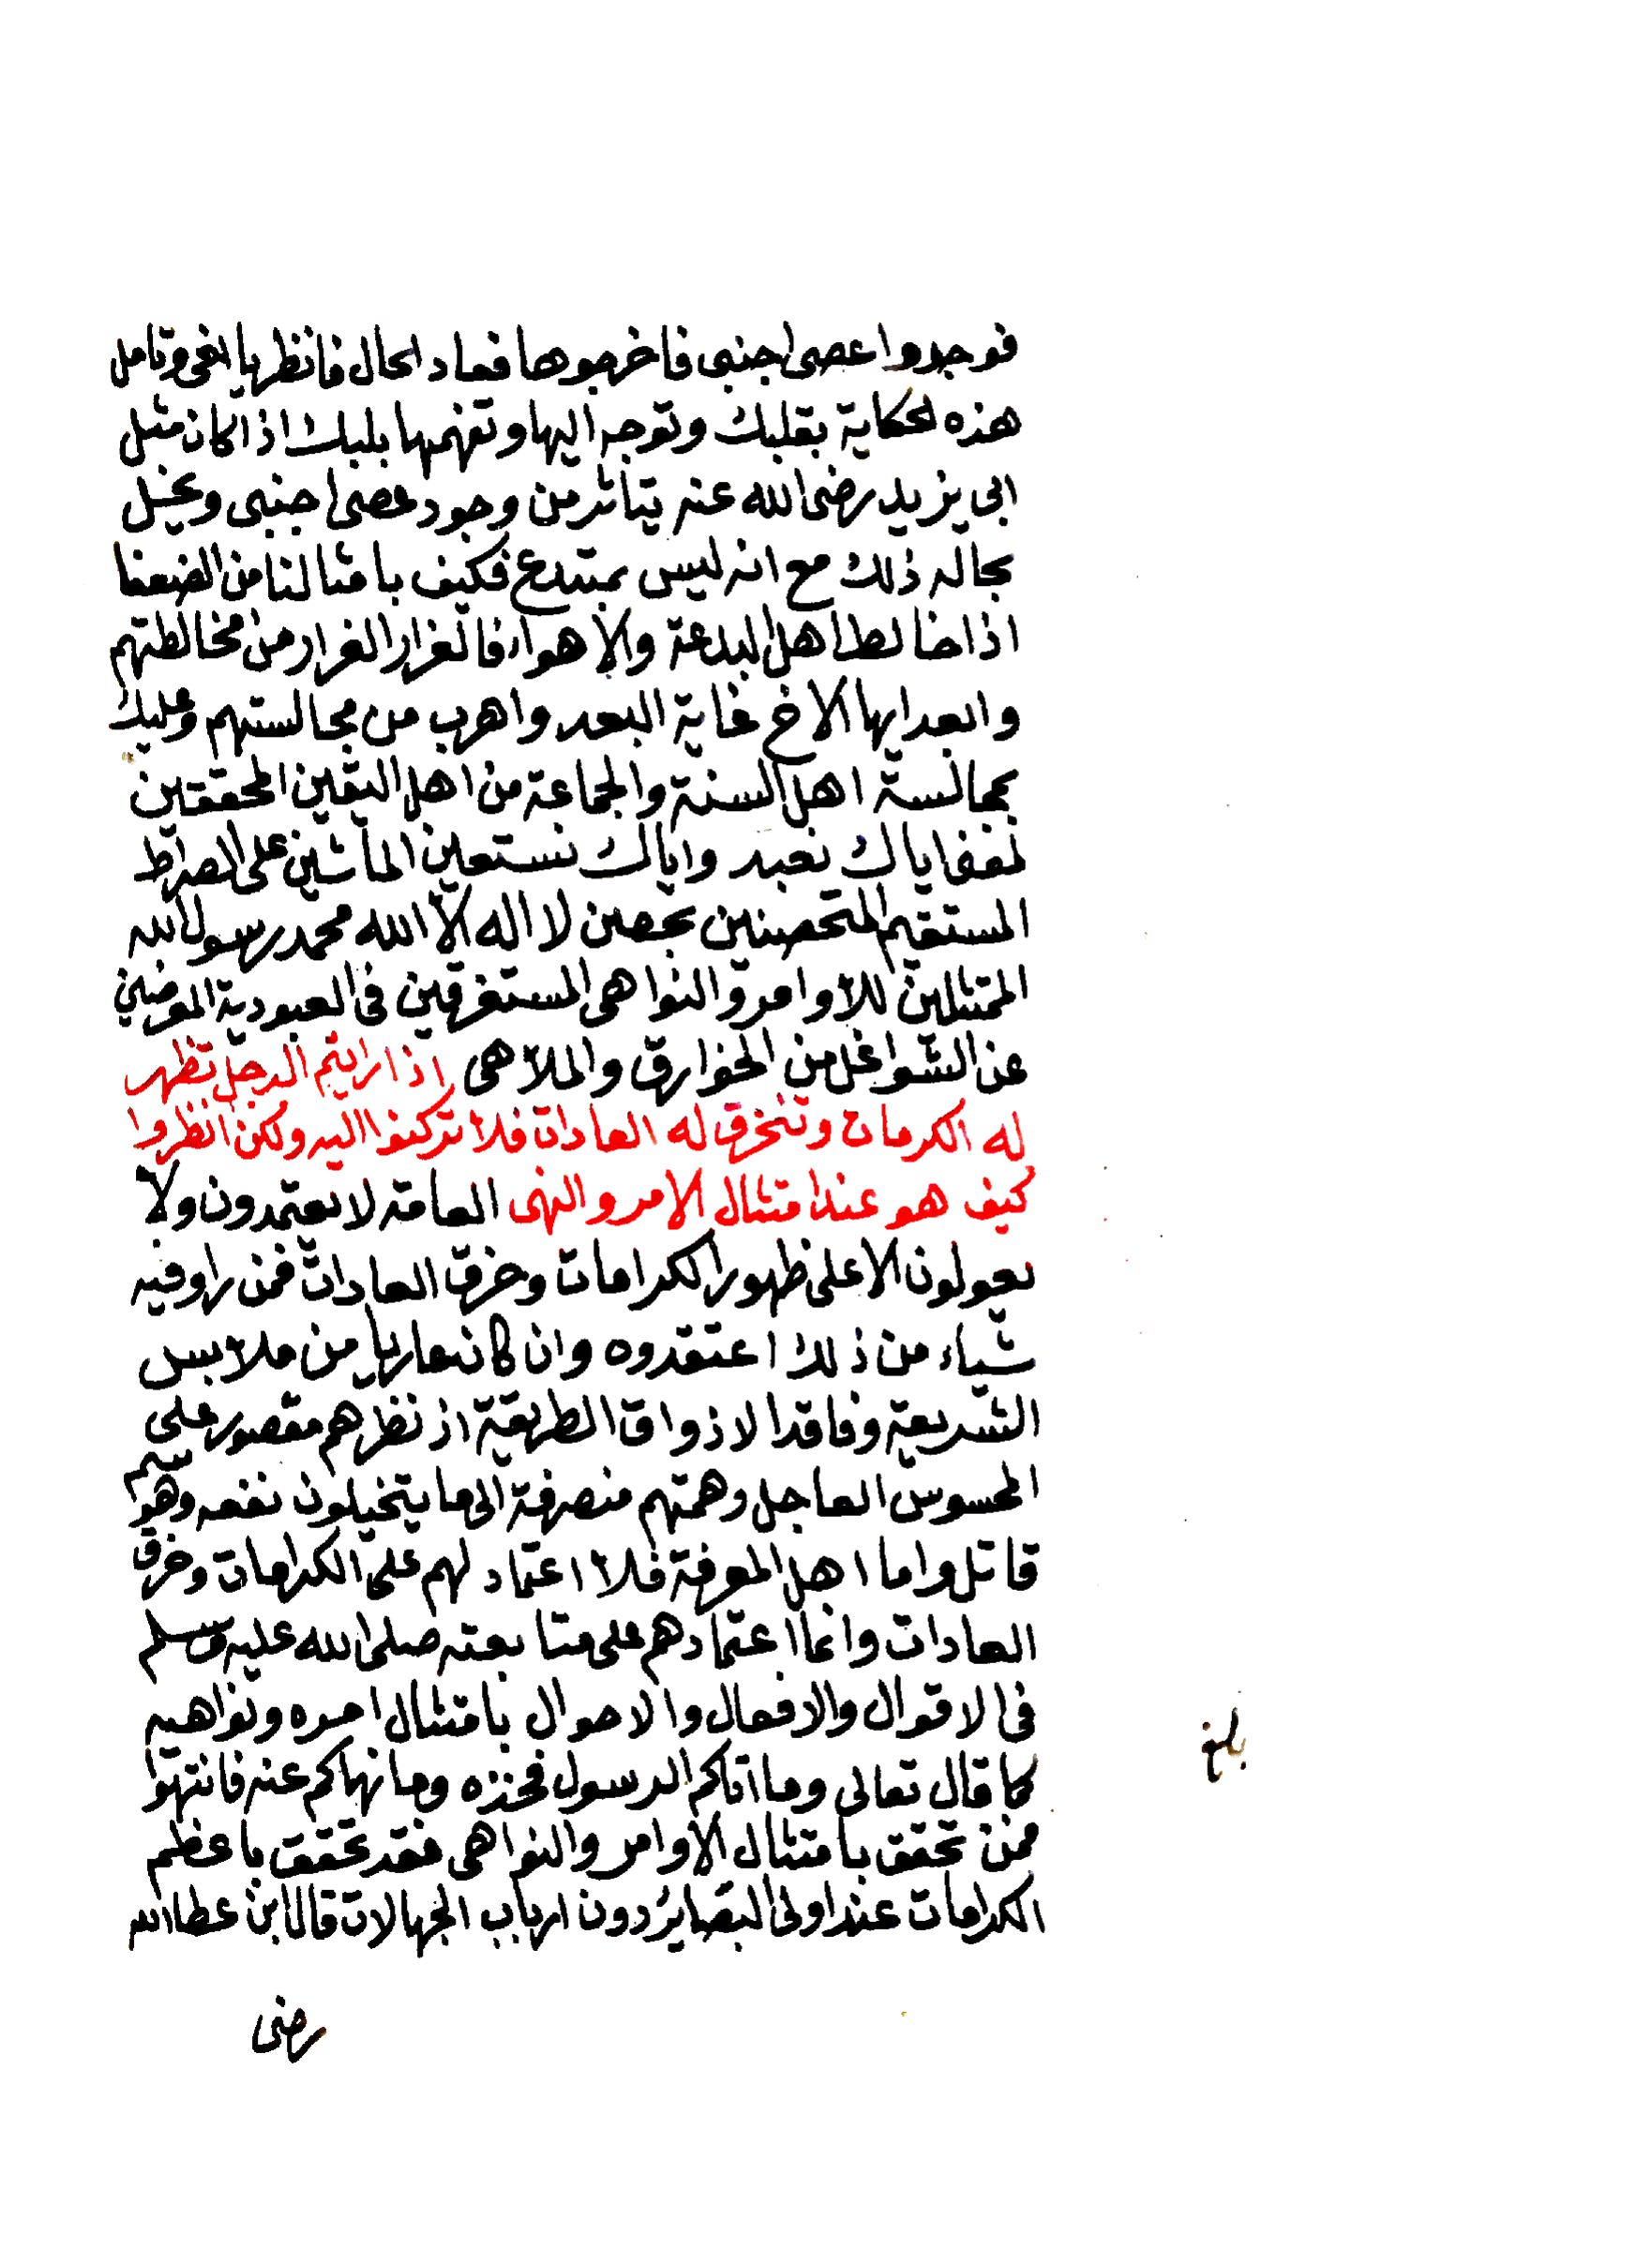 فوجدوا عصى اجنبى فاخرجوها فعاد الحال فانظر يا اخى وتامل
هذه الحكاية بقلبك وتوجه اليها وتفهمها بلبك اذا كان مثل
ابى يزيد رضى الله عنه يتاثر من وجود عصى اجنبى ويحيل
بحاله ذلك مع انه ليس بمبتدع فكيف بامثالنا من الضعفا
اذا خالط اهل البدعة والاهواء فالفرار الفرار من مخالطتهم
وابعد ايها الاخ غاية البعد واهرب من مجالستهم وعليك
بمجالسة اهل السنة والجماعة من اهل اليقين المحققين
اياك نعبد واياك نستعين الماشين على الصراط
المستقيم المتحصنين بحصن لا اله الا الله محمد رسول الله
الممتثلين للاوامر والنواهى المستغرقين فى العبودية المعرضين
عن الشواغل من الخوارق والملاهى اذا رايتم الرجل تظهر
له الكرمات وتنخرق له العادات فلا تركنوا اليه ولكن انظروا
كيف هو عند امتثال الامر والنهى العامة لا يعتمدون ولا
يعولون الا على ظهور الكرامات وخرق العادات فمن راو فيه
شياء من ذلك اعتقدوه وان كان عاريا من ملابس
الشريعة وفاقدا لاذواق الطريقة اذ نظرهم مقصور على
المحسوس العاجل وهمتهم منصرفة الى ما يتخيلون نفعه وهو سم
قاتل واما اهل المعرفة فلا اعتماد لهم على الكرامات وخرق
العادات وانما اعتمادهم على متابعته صلى الله عليه وسلم
فى الاقوال والافعال والاحوال بامتثال امره ونواهيه
كما قال تعالى وما اتاكم الرسول فخذه وما نهاكم عنه فانتهوا
فمن تحقق بامتثال الاوامر والنواهى فقد تحقق باعظم
الكرامات عند اولى البصاير دون ارباب الجهالات قال ابن عطا الله
رضى
بلغ